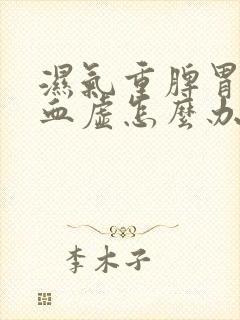 濕氣重脾胃
血虛怎麼办
李木子